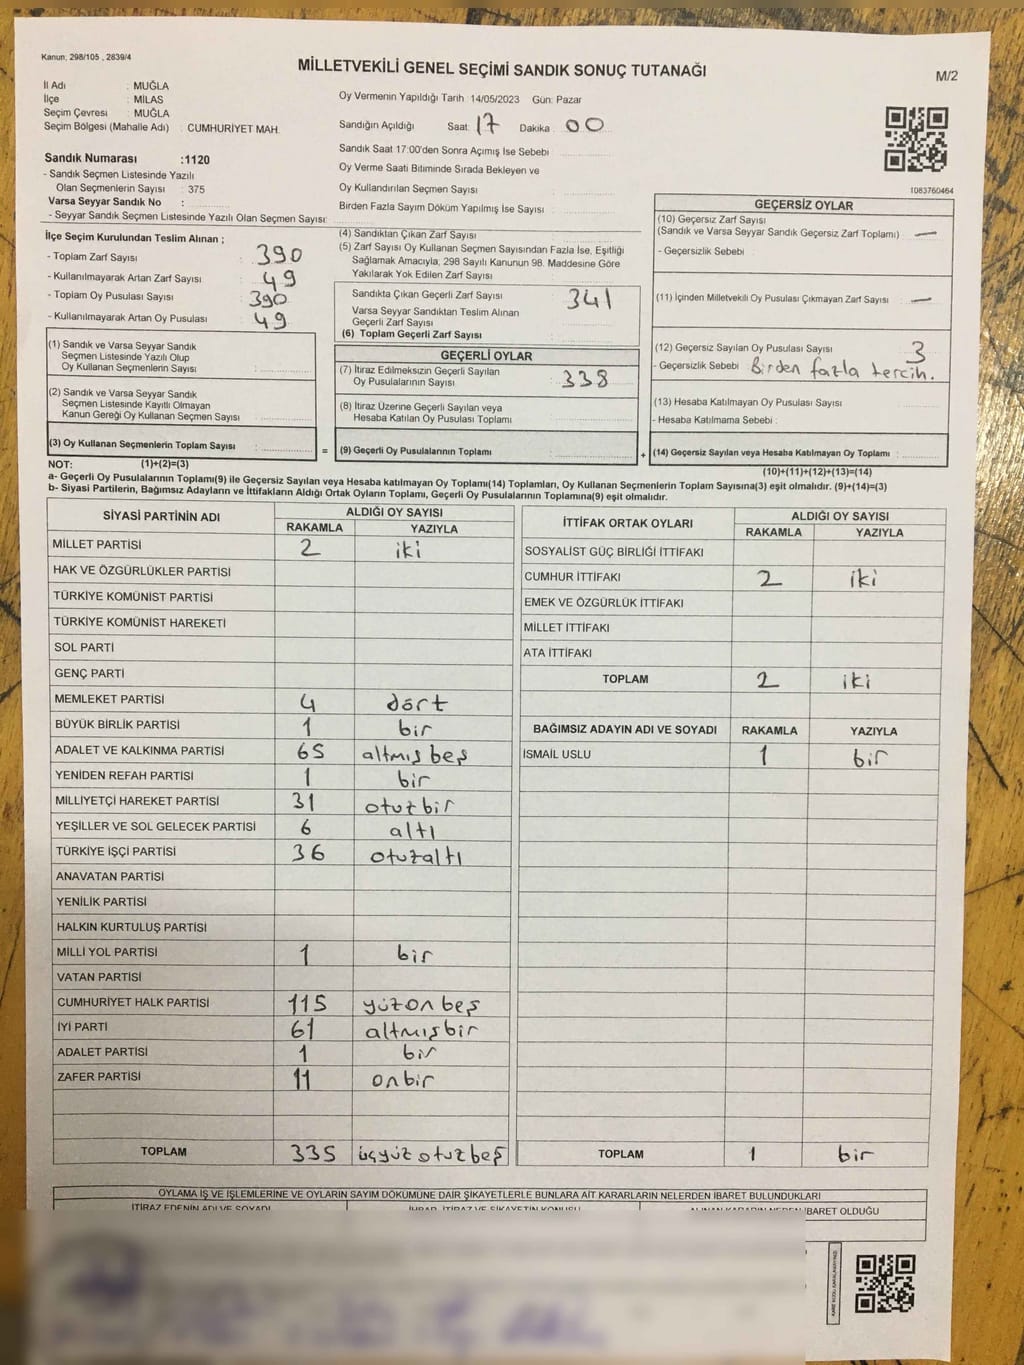 Kanun; 298/105 , 2839/4
MİLLETVEKİLİ GENEL SEÇİMİ SANDIK SONUÇ TUTANAĞI
M/2
İl Adı : MUĞLA
İlçe : MİLAS
Seçim Çevresi : MUĞLA
Seçim Bölgesi (Mahalle Adı) : CUMHURİYET MAH.
Oy Vermenin Yapıldığı Tarih : 14/05/2023 Gün: Pazar
Sandığın Açıldığı Saat 17 Dakika 00
Sandık Saat 17:00'den Sonra Açımış İse Sebebi
Oy Verme Saati Bitiminde Sırada Bekleyen ve
Oy Kullandırılan Seçmen Sayısı
Birden Fazla Sayım Döküm Yapılmış İse Sayısı
1083760464
Sandık Numarası :1120
- Sandık Seçmen Listesinde Yazılı
Olan Seçmenlerin Sayısı : 375
Varsa Seyyar Sandık No :
- Seyyar Sandık Seçmen Listesinde Yazılı Olan Seçmen Sayısı:
İlçe Seçim Kurulundan Teslim Alınan ;
- Toplam Zarf Sayısı : 390
- Kullanılmayarak Artan Zarf Sayısı : 49
- Toplam Oy Pusulası Sayısı : 390
- Kullanılmayarak Artan Oy Pusulası : 49
(1) Sandık ve Varsa Seyyar Sandık
Seçmen Listesinde Yazılı Olup
Oy Kullanan Seçmenlerin Sayısı :
(2) Sandık ve Varsa Seyyar Sandık
Seçmen Listesinde Kayıtlı Olmayan
Kanun Gereği Oy Kullanan Seçmen Sayısı :
(3) Oy Kullanan Seçmenlerin Toplam Sayısı :
(4) Sandıktan Çıkan Zarf Sayısı :
(5) Zarf Sayısı Oy Kullanan Seçmen Sayısından Fazla İse, Eşitliği
Sağlamak Amacıyla, 298 Sayılı Kanunun 98. Maddesine Göre
Yakılarak Yok Edilen Zarf Sayısı :
Sandıkta Çıkan Geçerli Zarf Sayısı : 341
Varsa Seyyar Sandıktan Teslim Alınan
Geçerli Zarf Sayısı :
(6) Toplam Geçerli Zarf Sayısı :
GEÇERLİ OYLAR
(7) İtiraz Edilmeksizin Geçerli Sayılan
Oy Pusulalarının Sayısı : 338
(8) İtiraz Üzerine Geçerli Sayılan veya
Hesaba Katılan Oy Pusulası Toplamı :
= (9) Geçerli Oy Pusulalarının Toplamı :
GEÇERSİZ OYLAR
(10) Geçersiz Zarf Sayısı
(Sandık ve Varsa Seyyar Sandık Geçersiz Zarf Toplamı) : —
- Geçersizlik Sebebi :
(11) İçinden Milletvekili Oy Pusulası Çıkmayan Zarf Sayısı : —
(12) Geçersiz Sayılan Oy Pusulası Sayısı 3
- Geçersizlik Sebebi : Birden fazla tercih.
(13) Hesaba Katılmayan Oy Pusulası Sayısı :
- Hesaba Katılmama Sebebi :
+ (14) Geçersiz Sayılan veya Hesaba Katılmayan Oy Toplamı :
NOT: (1)+(2)=(3)
(10)+(11)+(12)+(13)=(14)
a- Geçerli Oy Pusulalarının Toplamı(9) ile Geçersiz Sayılan veya Hesaba katılmayan Oy Toplamı(14) Toplamları, Oy Kullanan Seçmenlerin Toplam Sayısına(3) eşit olmalıdır. (9)+(14)=(3)
b- Siyasi Partilerin, Bağımsız Adayların ve İttifakların Aldığı Ortak Oyların Toplamı, Geçerli Oy Pusulalarının Toplamına(9) eşit olmalıdır.
SİYASİ PARTİNİN ADI ALDIĞI OY SAYISI
RAKAMLA YAZIYLA
MİLLET PARTİSİ 2 iki
HAK VE ÖZGÜRLÜKLER PARTİSİ
TÜRKİYE KOMÜNİST PARTİSİ
TÜRKİYE KOMÜNİST HAREKETİ
SOL PARTİ
GENÇ PARTİ
MEMLEKET PARTİSİ 4 dört
BÜYÜK BİRLİK PARTİSİ 1 bir
ADALET VE KALKINMA PARTİSİ 65 altmış beş
YENİDEN REFAH PARTİSİ 1 bir
MİLLİYETÇİ HAREKET PARTİSİ 31 otuz bir
YEŞİLLER VE SOL GELECEK PARTİSİ 6 altı
TÜRKİYE İŞÇİ PARTİSİ 36 otuzaltı
ANAVATAN PARTİSİ
YENİLİK PARTİSİ
HALKIN KURTULUŞ PARTİSİ
MİLLİ YOL PARTİSİ 1 bir
VATAN PARTİSİ
CUMHURİYET HALK PARTİSİ 115 yüzon beş
İYİ PARTİ 61 altmışbir
ADALET PARTİSİ 1 bir
ZAFER PARTİSİ 11 onbir
TOPLAM 335 üçyüz otuz beş
İTTİFAK ORTAK OYLARI ALDIĞI OY SAYISI
RAKAMLA YAZIYLA
SOSYALİST GÜÇ BİRLİĞİ İTTİFAKI
CUMHUR İTTİFAKI 2 iki
EMEK VE ÖZGÜRLÜK İTTİFAKI
MİLLET İTTİFAKI
ATA İTTİFAKI
TOPLAM 2 iki
BAĞIMSIZ ADAYIN ADI VE SOYADI RAKAMLA YAZIYLA
İSMAİL USLU 1 bir
TOPLAM 1 bir
OYLAMA İŞ VE İŞLEMLERİNE VE OYLARIN SAYIM DÖKÜMÜNE DAİR ŞİKAYETLERLE BUNLARA AİT KARARLARIN NELERDEN İBARET BULUNDUKLARI
İTİRAZ EDENİN ADI VE SOYADI
İBARET OLDUĞU